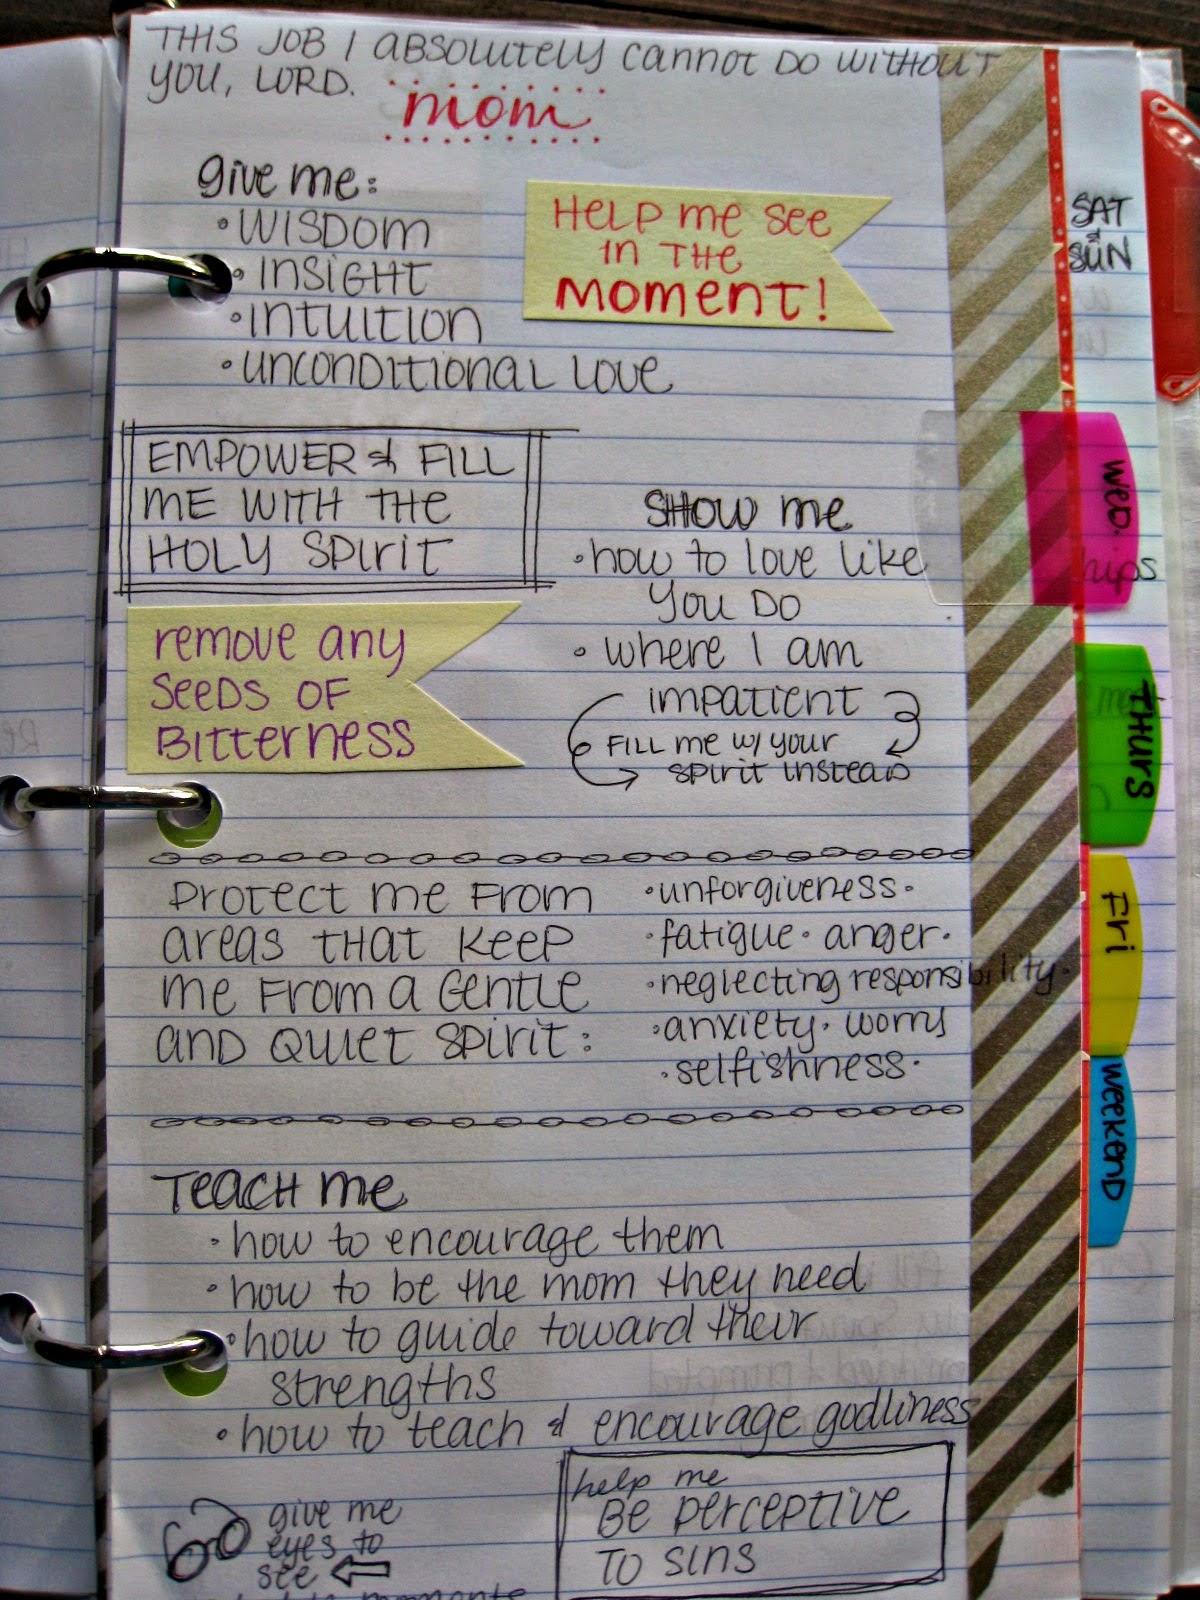 THIS JOB I ABSOLUTELY CANNOT DO WITHOUT
YOU, LORD.
mom
give me:
• WISDOM
• INSIGHT
• INTUITION
• UNCONDITIONAL LOVE
HELP me see
IN THE
MOMENT!
EMPOWER & FILL
ME WITH THE
HOLY SPIRIT
SHOW me
• how to love like
YOU DO
• where I am
IMPATIENT
FILL me w/ your
SPIRIT INSTEAD
remove any
SEEDS OF
BITTERNESS
PROTECT me FROM
areas THAT KEEP
me FROM a GENTLE
AND QUIET SPIRIT:
• unforgiveness •
• fatigue • anger •
• neglecting responsibility •
• anxiety • worry
• selfishness •
TEACH me
• how to encourage them
• how to be the mom they need
• how to guide toward their
strengths
• how to teach & encourage godliness
give me
eyes to
see
moments
help me
Be perceptive
TO SINS
SAT
&
SUN
WED.
hips
THURS
FRI
WEEKEND